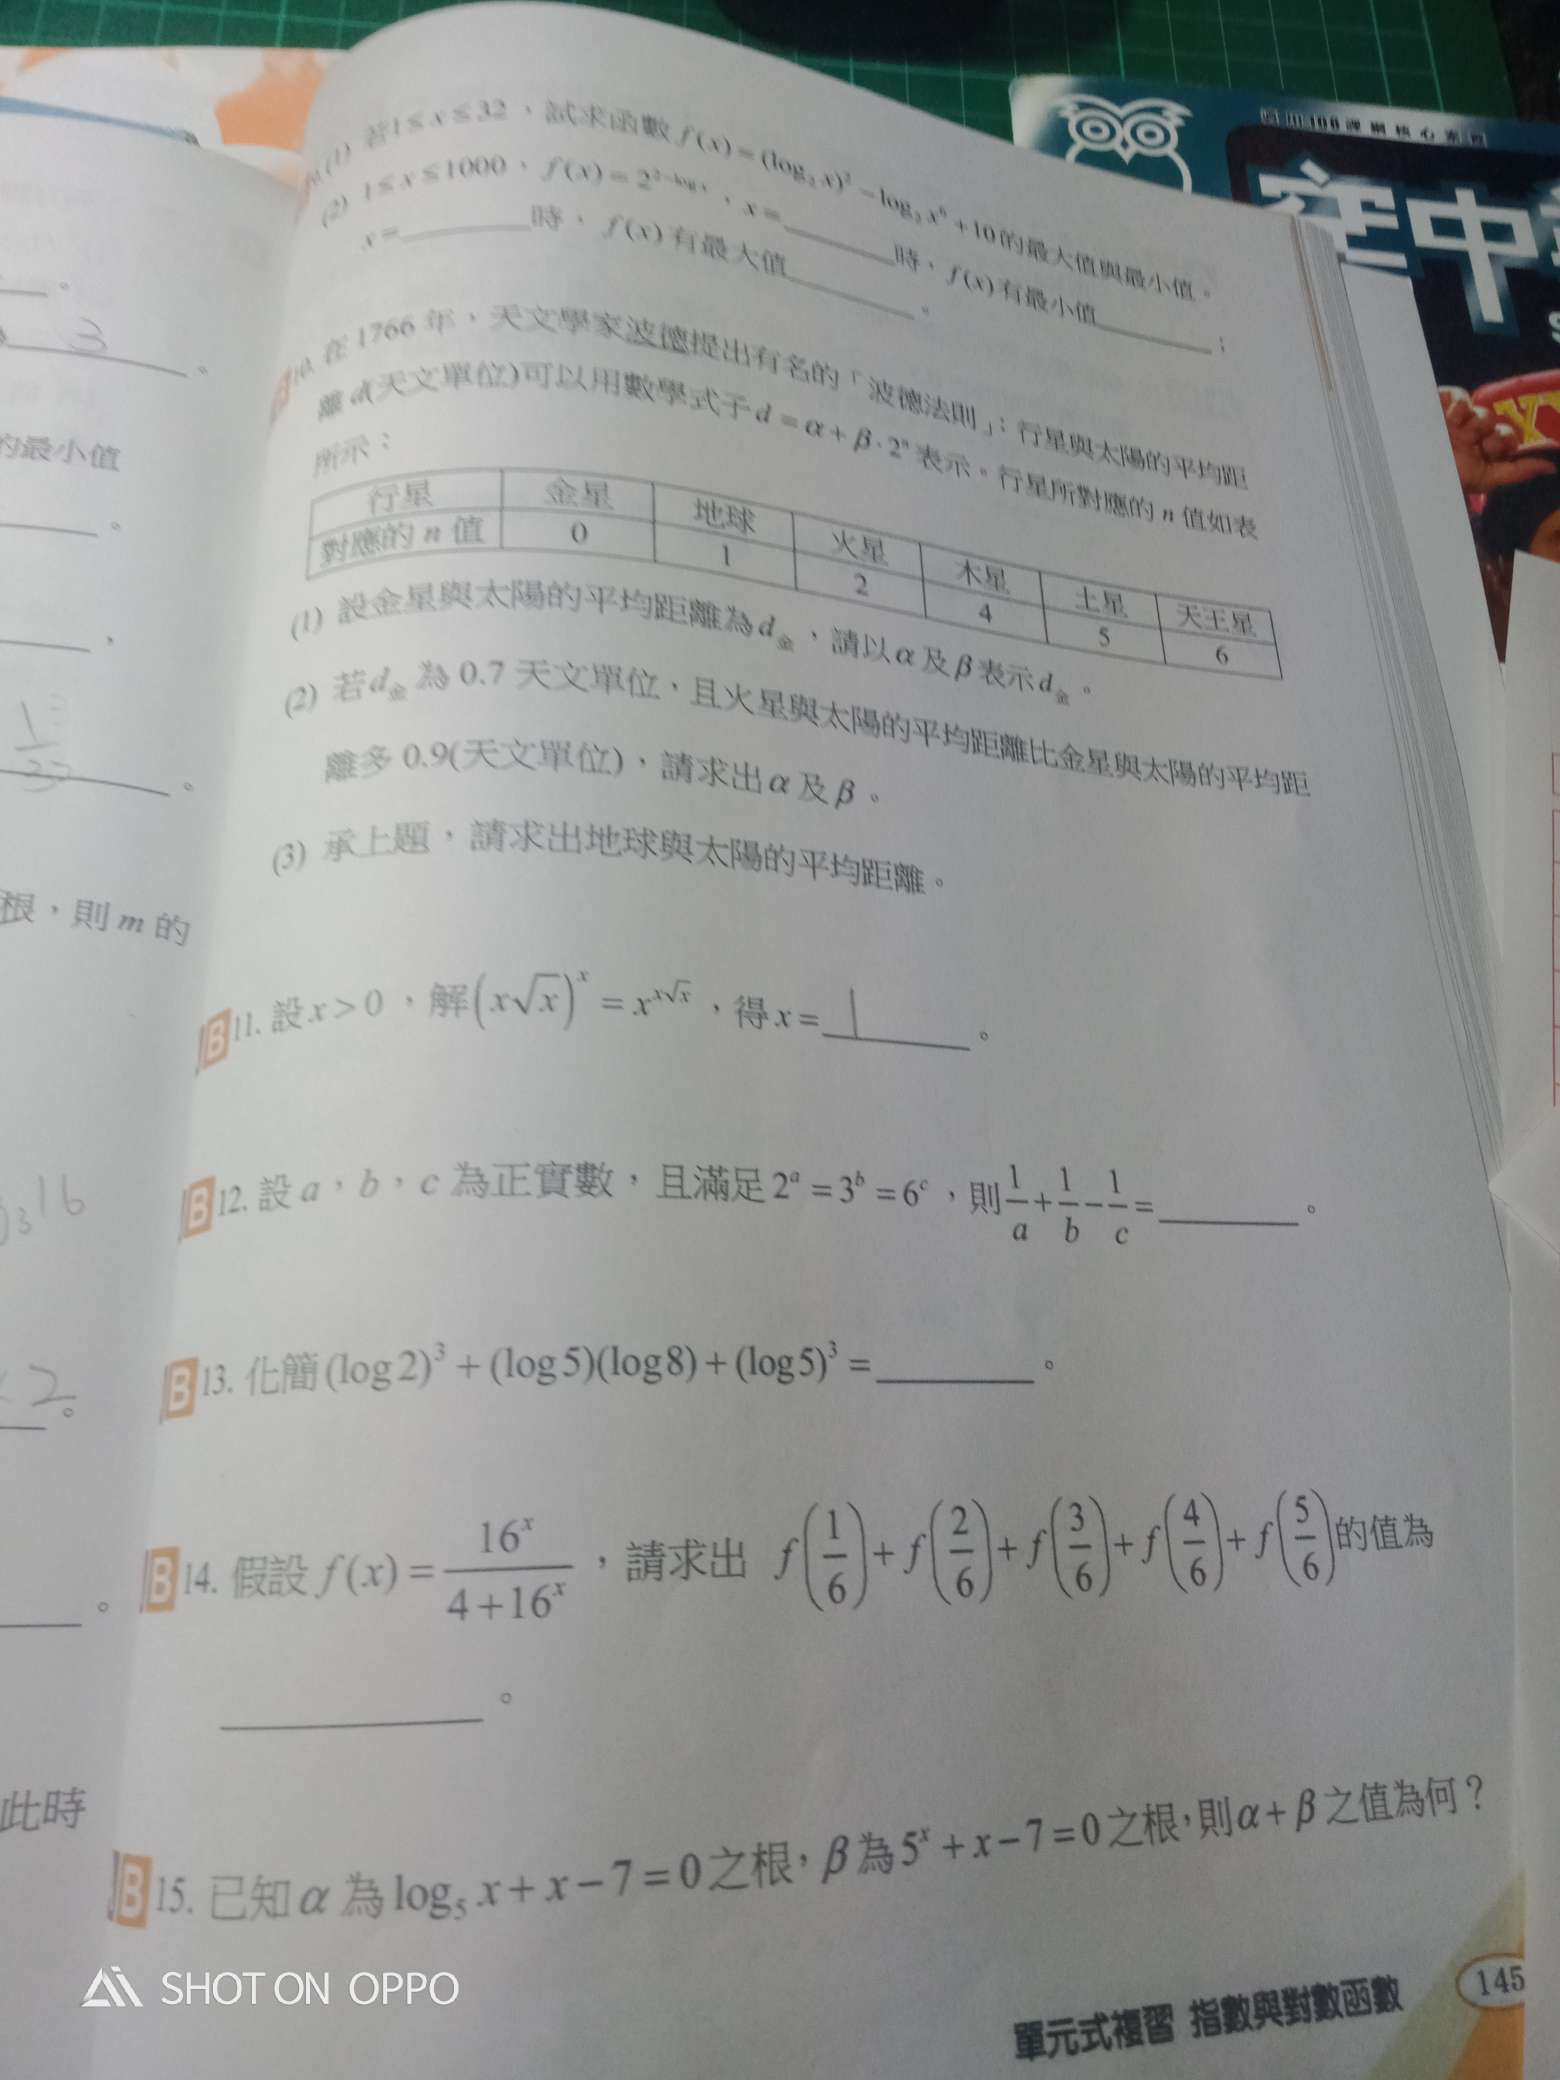 的最小值
3
根，則 m 的
16
2
此時
(1) 若1≤x≤32，試求函數 f(x)=(log₂x)²−log₂x⁶+10的最大值與最小值。
(2) 1≤x≤1000，f(x)=2^(2−log x)，x=________時，f(x)有最小值________；
x=________時，f(x)有最大值________。
10. 在1766年，天文學家波德提出有名的「波德法則」：行星與太陽的平均距
離d(天文單位)可以用數學式子d=α+β·2ⁿ表示。行星所對應的n值如表
所示：
行星 金星 地球 火星 木星 土星 天王星
對應的n值 0 1 2 4 5 6
(1) 設金星與太陽的平均距離為d金，請以α及β表示d金。
(2) 若d金為0.7天文單位，且火星與太陽的平均距離比金星與太陽的平均距
離多0.9(天文單位)，請求出α及β。
(3) 承上題，請求出地球與太陽的平均距離。
B 11. 設x>0，解(x√x)^x=x^(x√x)，得x=1。
B 12. 設a，b，c為正實數，且滿足2^a=3^b=6^c，則1/a+1/b−1/c=________。
B 13. 化簡(log2)³+(log5)(log8)+(log5)³=________。
B 14. 假設f(x)=16^x/(4+16^x)，請求出 f(1/6)+f(2/6)+f(3/6)+f(4/6)+f(5/6)的值為
________。
B 15. 已知α為log₅x+x−7=0之根，β為5^x+x−7=0之根，則α+β之值為何？
單元式複習 指數與對數函數 145
空中
SHOT ON OPPO